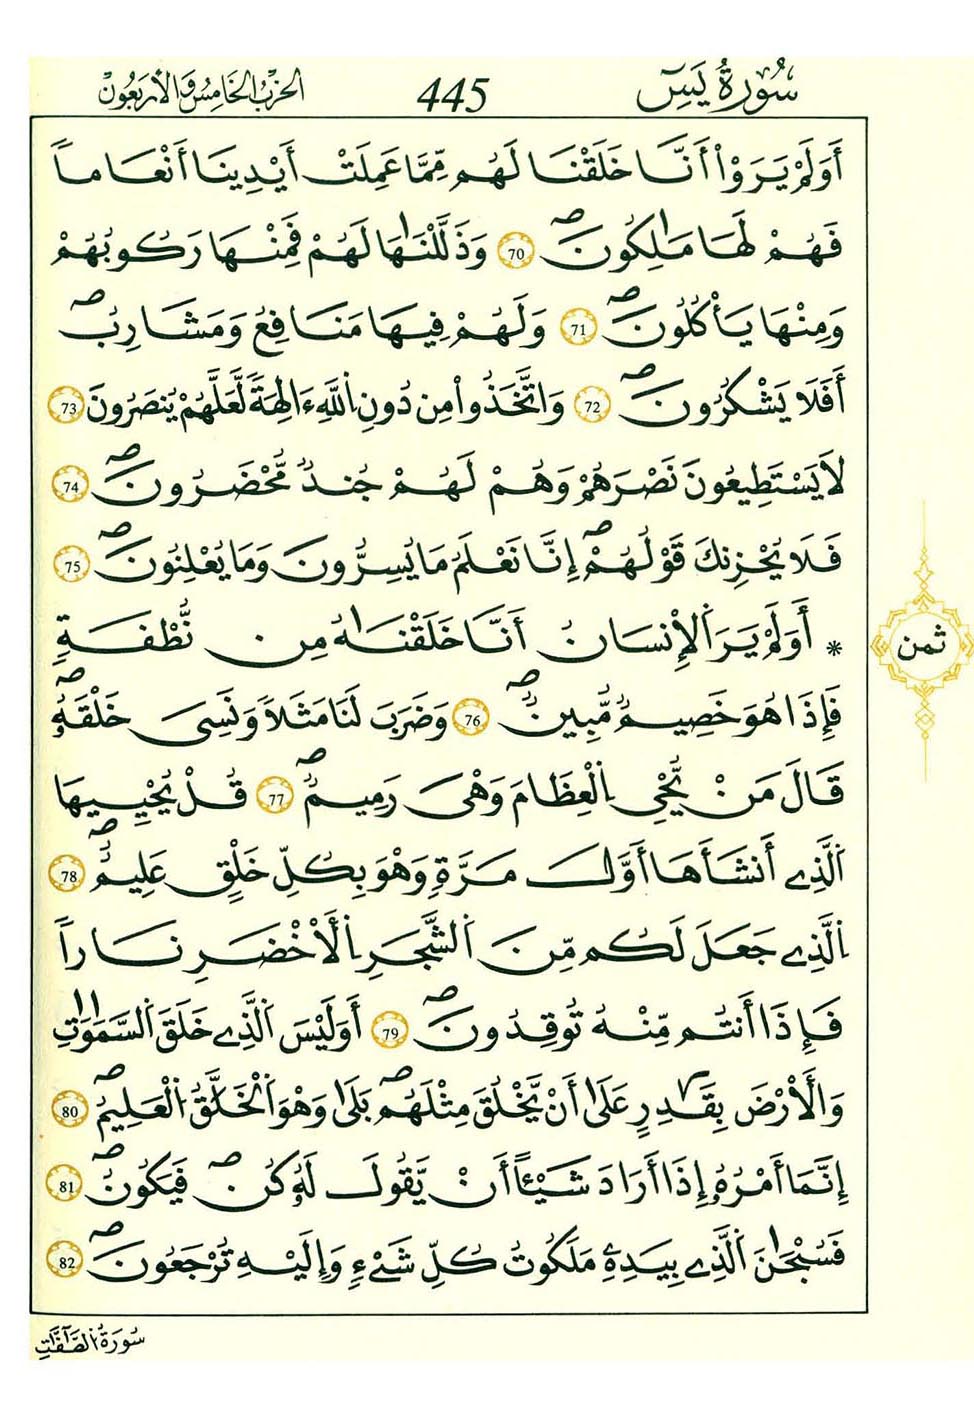 سُورَةُ يَسِٓ 445 الحِزْبُ الخَامِسُ وَالأَرْبَعُونَ
أَوَلَمْ يَرَوْا۟ اَنَّا خَلَقْنَا لَهُم مِّمَّا عَمِلَتَ اَيْدِينَا أَنْعَٰماً
فَهُمْ لَهَا مَٰلِكُونَۖ 70 وَذَلَّلْنَٰهَا لَهُمْ فَمِنْهَا رَكُوبُهُمْ
وَمِنْهَا يَأْكُلُونَۖ 71 وَلَهُمْ فِيهَا مَنَٰفِعُ وَمَشَارِبُۖ
أَفَلَا يَشْكُرُونَۖ 72 وَاتَّخَذُوا۟ مِن دُونِ اِ۬للَّهِ ءَالِهَةٗ لَّعَلَّهُمْ يُنصَرُونَ 73
لَا يَسْتَطِيعُونَ نَصْرَهُمْ وَهُمْ لَهُمْ جُندٞ مُّحْضَرُونَۖ 74
فَلَا يُحْزِنكَ قَوْلُهُمُۥٓۖ إِنَّا نَعْلَمُ مَا يُسِرُّونَ وَمَا يُعْلِنُونَۖ 75
* أَوَلَمْ يَرَ اَ۬لِانسَٰنُ أَنَّا خَلَقْنَٰهُ مِن نُّطْفَةٖ
فَإِذَا هُوَ خَصِيمٞ مُّبِينٞۖ 76 وَضَرَبَ لَنَا مَثَلاً وَنَسِيَ خَلْقَهُۥۖ
قَالَ مَنْ يُّحْيِ اِ۬لْعِظَٰمَ وَهْيَ رَمِيمٞۖ 77 قُلْ يُحْيِيهَا
اَ۬لَّذِےٓ أَنشَأَهَا أَوَّلَ مَرَّةٖ وَهْوَ بِكُلِّ خَلْقٍ عَلِيمٌۖ 78
اِ۬لَّذِے جَعَلَ لَكُم مِّنَ اَ۬لشَّجَرِ اِ۬لَاخْضَرِ نَاراً
فَإِذَا أَنتُم مِّنْهُ تُوقِدُونَۖ 79 أَوَلَيْسَ اَ۬لَّذِے خَلَقَ اَ۬لسَّمَٰوَٰتِ
وَالَارْضَ بِقَٰدِرٍ عَلَىٰ أَنْ يَّخْلُقَ مِثْلَهُمۖ بَلَىٰ وَهْوَ اَ۬لْخَلَّٰقُ اُ۬لْعَلِيمُۖ 80
إِنَّمَا أَمْرُهُۥ إِذَا أَرَادَ شَيْـًٔا اَنْ يَّقُولَ لَهُۥ كُنۖ فَيَكُونُۖ 81
فَسُبْحَٰنَ اَ۬لَّذِے بِيَدِهِۦ مَلَكُوتُ كُلِّ شَےْءٖ وَإِلَيْهِ تُرْجَعُونَۖ 82
ثمن
سُورَةُ الصَّٰٓفَّٰتِ